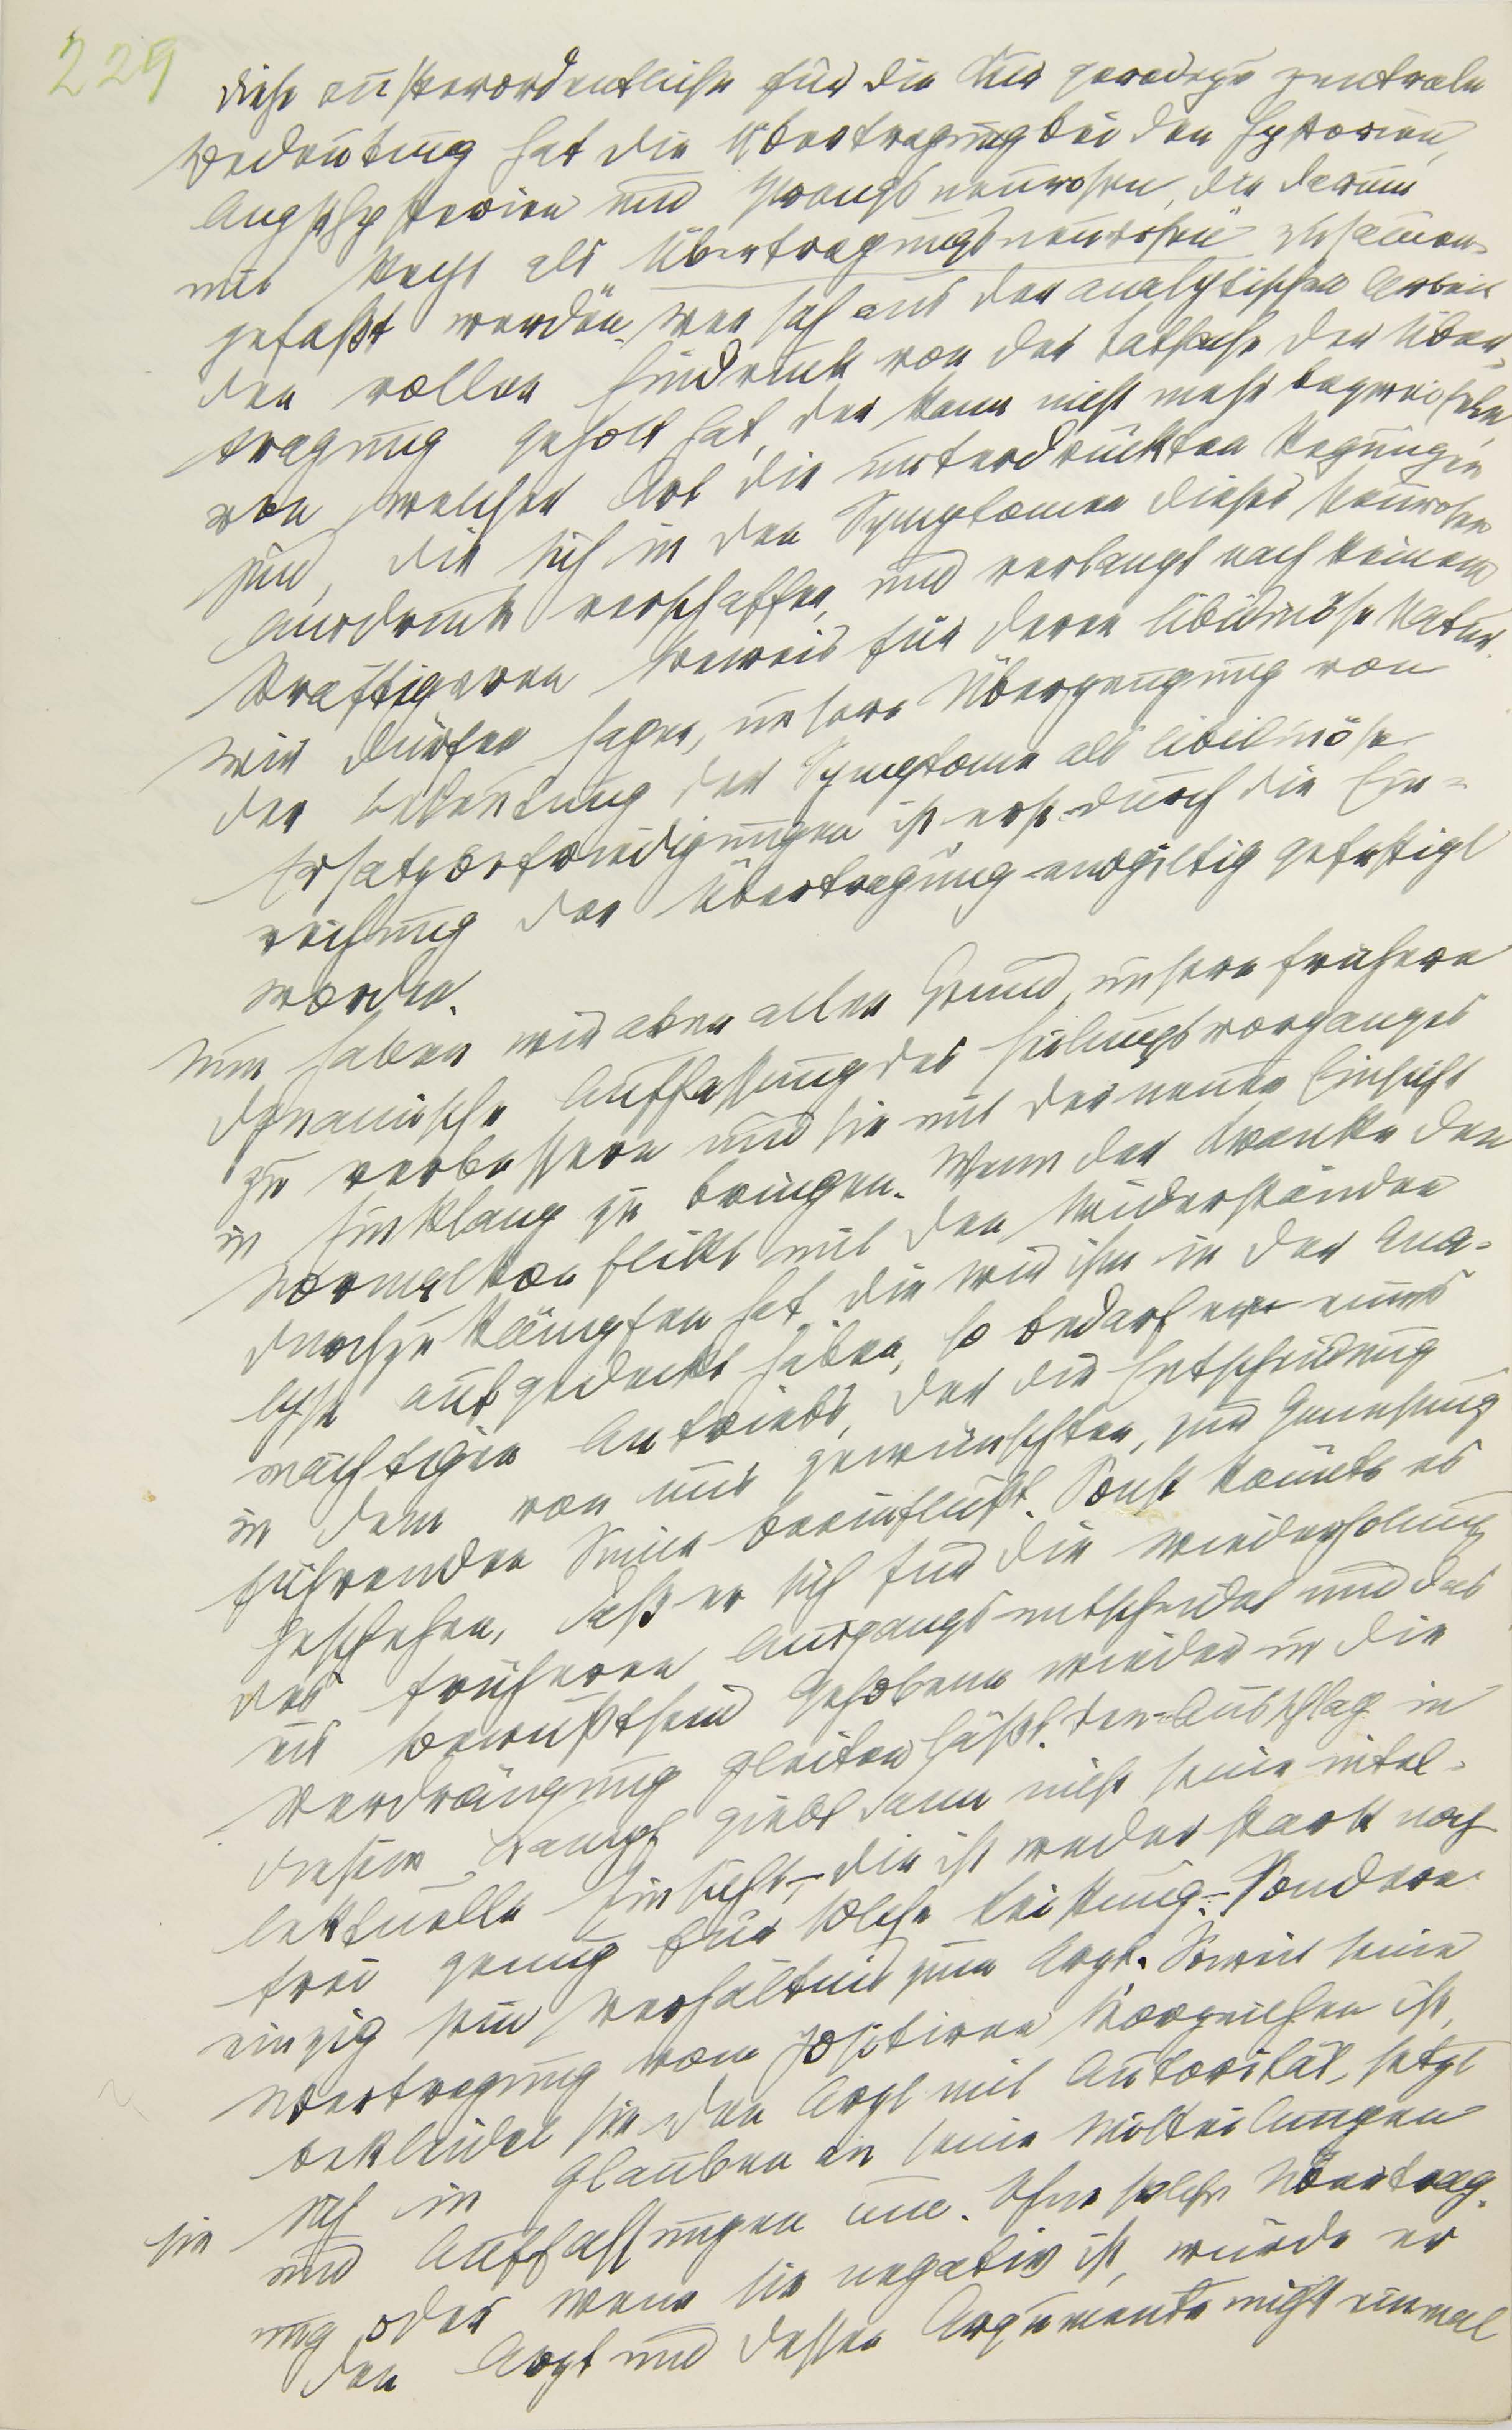 229
Diese außerordentliche, für die Kur geradezu zentrale
Bedeutung hat die Übertragung bei den Hysterien,
Angsthysterien und Zwangsneurosen, die darum
mit Recht als „Übertragungsneurosen" zusammen-
gefaßt werden. Wer sich aus der analytischen Arbeit
den vollen Eindruck von der Tatsache der Über-
tragung geholt hat, der kann nicht mehr bezweifeln,
von welcher Art die unterdrückten Regungen
sind, die sich in den Symptomen dieser Neurosen
Ausdruck verschaffen, und verlangt nach keinem
kräftigeren Beweis für deren libidinöse Natur.
Wir dürfen sagen, unsere Überzeugung von
der Bedeutung der Symptome als libidinöse
Ersatzbefriedigungen ist erst durch die Ein-
reihung der Übertragung endgiltig gefestigt
worden.
Nun haben wir aber allen Grund, unsere frühere
dynamische Auffassung des Heilungsvorganges
zu verbessern und sie mit der neuen Einsicht
in Einklang zu bringen. Wenn der Kranke den
Normalkonflikt mit den Widerständen
durchzukämpfen hat, die wir ihm in der Ana-
lyse aufgedeckt haben, so bedarf er eines
mächtigen Antriebs, der die Entscheidung
in dem von uns gewünschten, zur Genesung
führenden Sinne beeinflußt. Sonst könnte es
geschehen, daß er sich für die Wiederholung
des früheren Ausgangs entscheidet und das
ins Bewußtsein Gehobene wieder in die
Verdrängung gleiten läßt. Den Ausschlag in
diesem Kampf giebt dann nicht seine intel-
lektuelle Einsicht, – die ist weder stark noch
frei genug für solche Leistung, – sondern
einzig sein Verhältnis zum Arzt. Soweit seine
Übertragung vom positiven Vorzeichen ist,
bekleidet sie den Arzt mit Autorität, setzt
sie sich in Glauben an seine Mitteilungen
und Auffassungen um. Ohne solche Übertrag-
ung oder wenn sie negativ ist, würde er
den Arzt und dessen Argumente nicht einmal